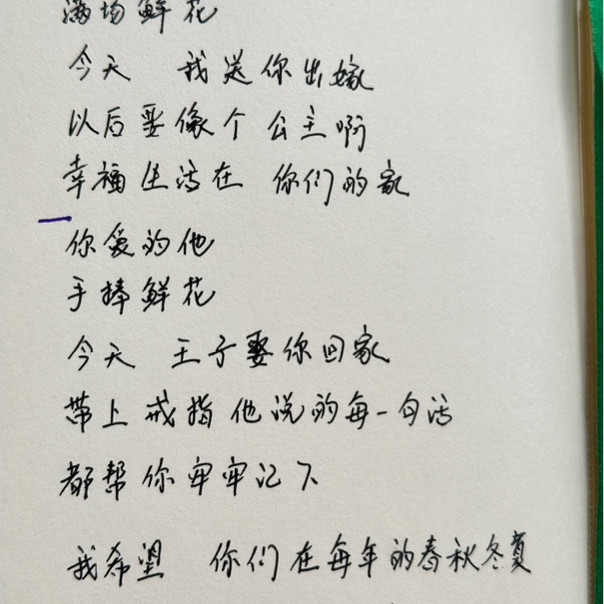 满场鲜花
今天 我送你出嫁
以后要像个公主啊
幸福生活在 你们的家
你爱的他
手捧鲜花
今天 王子娶你回家
带上戒指他说的每一句话
都帮你牢牢记下
我希望 你们在每年的春秋冬夏